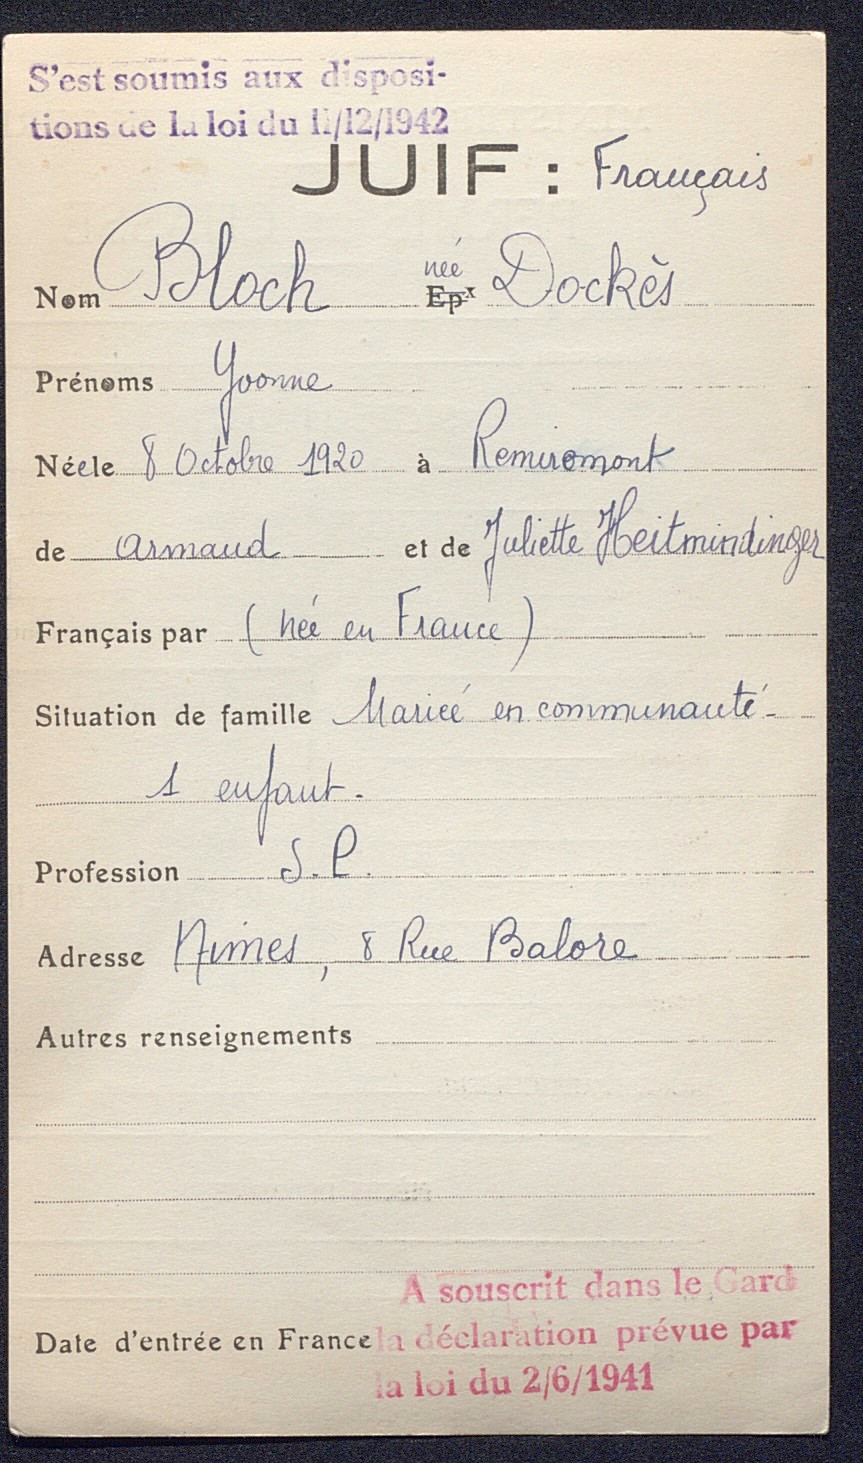 S'est soumis aux disposi-
tions de la loi du 11/12/1942
JUIF : Français
Nom Bloch née Epx Dockès
Prénoms Yvonne
Néele 8 Octobre 1920 à Remiremont
de Armand et de Juliette Heitmindinger
Français par (née en France)
Situation de famille Mariée en communauté -
1 enfant.
Profession S.P.
Adresse Nimes, 8 Rue Balore
Autres renseignements
A souscrit dans le Gard
Date d'entrée en France la déclaration prévue par
la loi du 2/6/1941